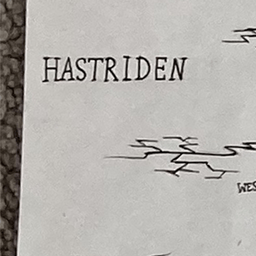 HASTRIDEN
WES